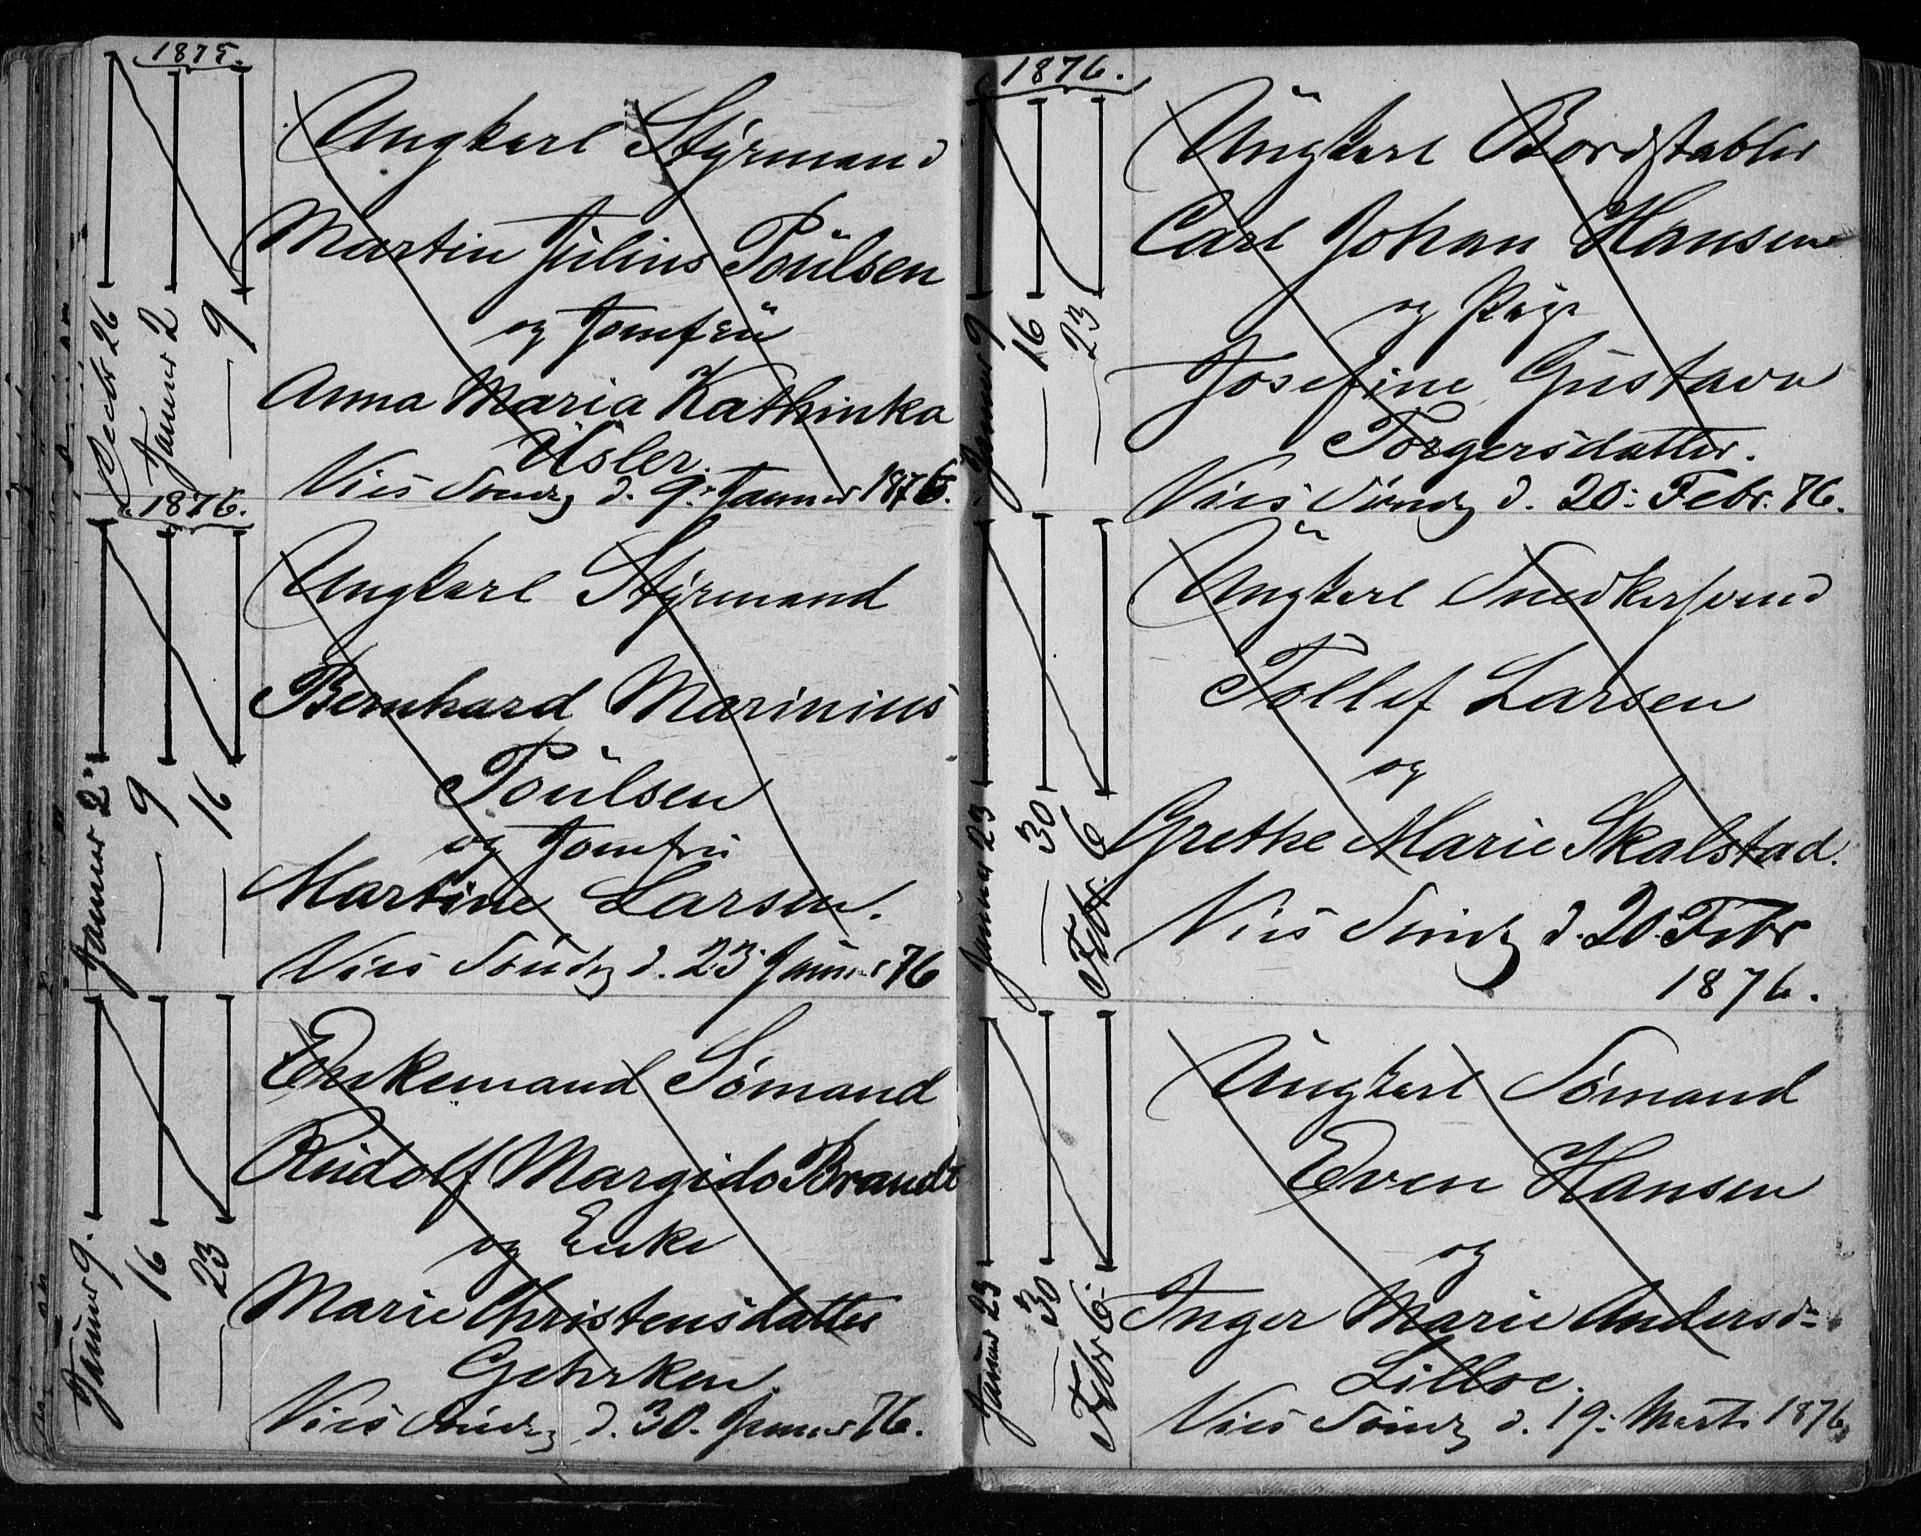 1875.
Decbr 26
Januar 2
— 9
Ungkarl Styrmand
Martin Julius Poulsen
og Jomfru
Anna Maria Kathinka
Usler.
Vies Søndag d. 9. Januar 1876.
1876.
Januar 2
— 9
— 16
Ungkarl Styrmand
Bernhard Marinius
Poulsen
og Jomfru
Martine Larsen.
Vies Søndag d. 23. Januar 76
Januar 9.
— 16
— 23
Enkemand Sømand
Rudolf Margido Brandt
og Enke
Marie Christensdatter
Gehrken.
Vies Søndag d. 30. Januar 76.
1876.
Januar 9
— 16
— 23
Ungkarl Bordstabler
Carl Johan Hansen
og Pige
Josefine Gustava
Torgersdatter.
Vies Søndag d. 20. Febr. 76.
Januar 23
— 30
Febr. 6
Ungkarl Snedkersvend
Tollef Larsen
og
Grethe Marie Skalstad.
Vies Søndag d. 20. Febr
1876.
Januar 23
— 30
Febr 6.
Ungkarl Sømand
Even Hansen
og
Inger Marie Andersd.
Lilloe.
Vies Søndag d. 19. Marts 1876